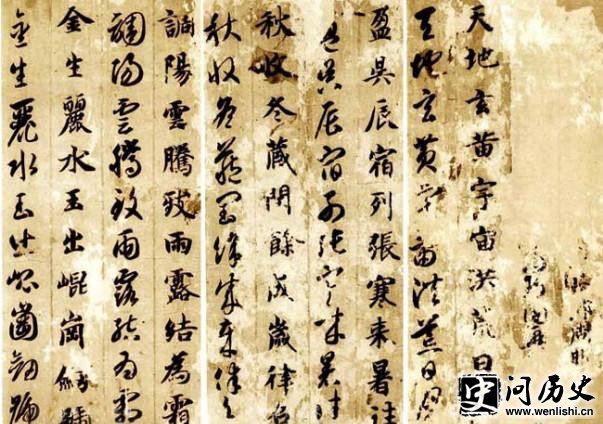 天地玄黄宇宙洪荒日
天地玄黄宇宙洪荒日
盈昃辰宿列張寒来暑往
昃辰宿列張寒来暑往
秋收冬藏閏餘成歲律
秋收冬藏閏餘成歲律
調陽雲騰致雨露結為霜
調陽雲騰致雨露結為霜
金生麗水玉出崐崗劒號
金生麗水玉出崐崗劒號
问历史
www.wenlishi.cn